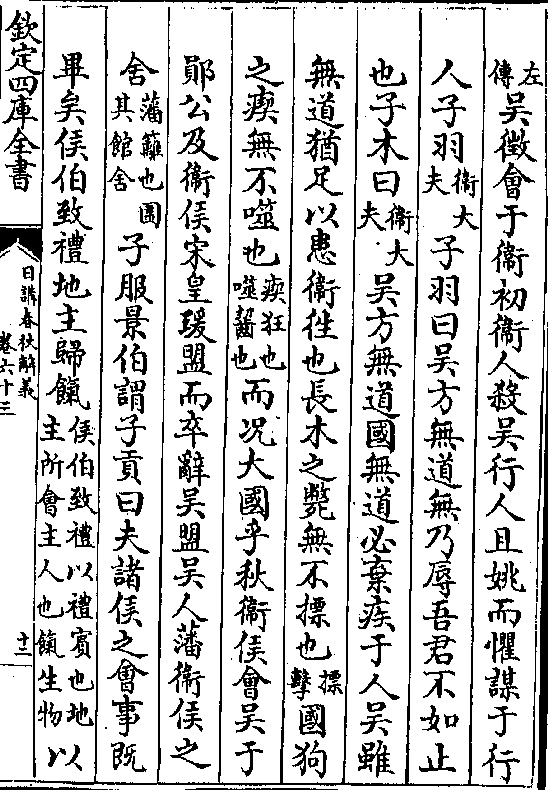 左傳吳徵會于衛初衛人殺吳行人且姚而懼謀于行
人子羽衛大夫子羽曰吳方無道無乃辱吾君不如止
也子木曰衛大夫吳方無道國無道必棄疾于人吳雖
無道猶足以患衛徃也長木之斃無不摽也摽擊國狗
之瘈無不噬也瘈狂也噬齧也而况大國乎秋衛侯會吳于
鄖公及衛侯宋皇瑗盟而卒辭吳盟吳人藩衛侯之
舍藩籬也圍其館舍子服景伯謂子貢曰夫諸侯之會事既
畢矣侯伯致禮地主歸餼侯伯致禮以禮賓也地主所會主人也餼生物以
欽定四庫全書
日講春秋解義
卷六十三
十二